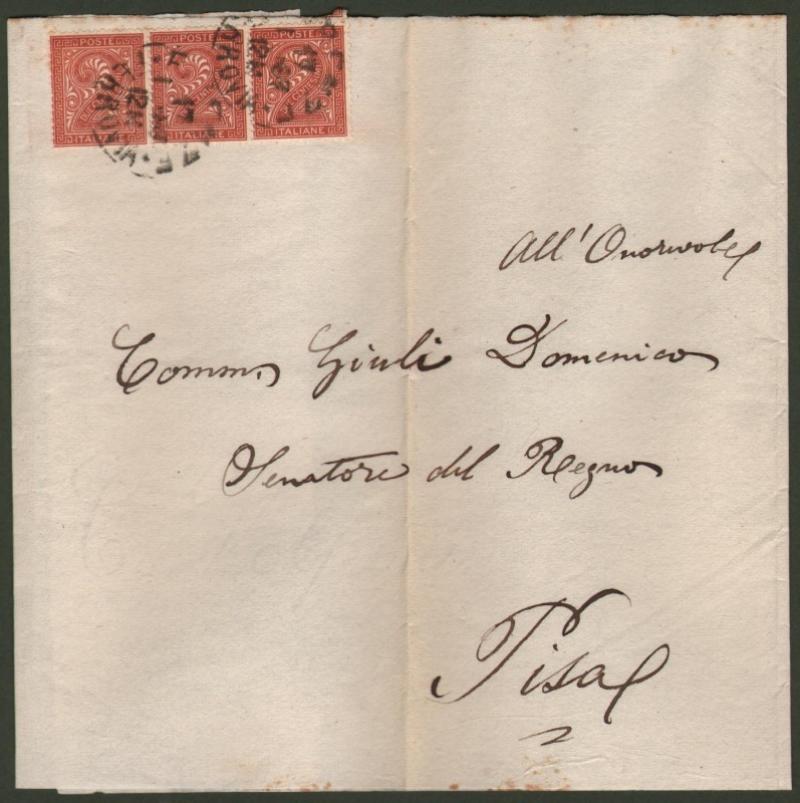 POSTE POSTE
ITALIANE ITALIANE ITALIANE
All' Onorevole
Comm. Giuli Domenico
Senatore del Regno
Pisa